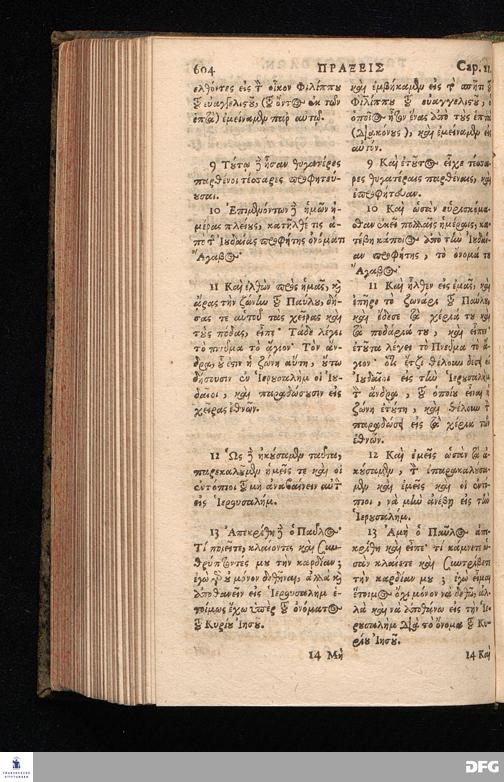 604 ΠΡΑΞΕΙΣ Cap. 21.
ελθόντες εἰς τ̃ οἶκον Φιλίππου
τ̃ εὐαγγελιστοῦ, (τ̃ ὄντος ἐκ τῶν
ἑπτὰ) ἐμείναμεν παρ' αὐτῷ.
9 Τούτῳ ἢ ἦσαν θυγατέρες
παρθένοι τέσσαρες προφητεύ-
ουσαι.
10 Ἐπιμενόντων ἢ ἡμῶν ἡ-
μέρας πλείους, κατῆλθέ τις ἀ-
πὸ τ̃ Ἰουδαίας προφήτης ὀνόματι
Ἄγαβος.
11 Καὶ ἐλθὼν πρὸς ἡμᾶς, κὶ
ἄρας τὴν ζώνην τ̃ Παύλου, δή-
σας τε αὑτοῦ τὰς χεῖρας καὶ
τοὺς πόδας, εἶπε· Τάδε λέγει
τὸ πνεῦμα τὸ ἅγιον· Τὸν ἄν-
δρα, οὗ ἐστιν ἡ ζώνη αὕτη, οὕτω
δήσουσιν ἐν Ἱερουσαλὴμ οἱ Ἰου-
δαῖοι, καὶ παραδώσουσιν εἰς
χεῖρας ἐθνῶν.
12 Ὡς ἢ ἠκούσαμεν ταῦτα,
παρεκαλοῦμεν ἡμεῖς τε καὶ οἱ
ἐντόπιοι τ̃ μὴ ἀναβαίνειν αὐτὸν
εἰς Ἱερουσαλήμ.
13 Ἀπεκρίθη ἢ ὁ Παῦλος·
Τί ποιεῖτε, κλαίοντες καὶ συν-
θρύπτοντές μου τὴν καρδίαν;
ἐγὼ γὰρ οὐ μόνον δεθῆναι, ἀλλὰ κὶ
ἀποθανεῖν εἰς Ἱερουσαλὴμ ἑ-
τοίμως ἔχω ὑπὲρ τ̃ ὀνόματος
τ̃ Κυρίου Ἰησοῦ.
14 Μὴ
καὶ ἐμβήκαμεν εἰς τ̃ σπήτι τ̃
Φιλίππου τ̃ εὐαγγελιστοῦ, ὁ
ὁποῖος ἦτον ἕνας ἀπὸ τοὺς ἑπτὰ
(Διακόνους), καὶ ἐμείναμεν εἰς
αὐτόν.
9 Καὶ ἐτοῦτος εἶχε τέσσα-
ρες θυγατέραις παρθέναις, καὶ
ἐπροφήτευαν.
10 Καὶ ὡσὰν εὑρισκόμε-
θαν ἐκεῖ πολλαῖς ἡμέραις, κα-
τέβη κάποιος ἀπὸ τὼν Ἰουδαί-
αν προφήτης, τὸ ὄνομά του
Ἄγαβος.
11 Καὶ ἦλθεν εἰς ἐμᾶς, καὶ
ἐπῆρε τὸ ζωνάρι τ̃ Παύλου,
καὶ ἔδεσε τὰ χέριά του καὶ
τὰ ποδάριά του, καὶ εἶπε·
ἐτοῦτα λέγει τὸ Πνεῦμα τὸ ἅ-
γιον· ὅτι ἔτζι θέλουν δέσει οἱ
Ἰουδαῖοι εἰς τὼν Ἱερουσαλὴμ
τ̃ ἄνδρα, τ̃ ὁποίου εἶναι ἡ
ζώνη ἐτούτη, καὶ θέλουν τ̃
παραδώσει εἰς τὰ χέρια τῶν
ἐθνῶν.
12 Καὶ ἐμεῖς ὡσὰν τὰ ἀ-
κούσαμεν, τ̃ ἐπαρακαλούσα-
μεν καὶ ἐμεῖς καὶ οἱ ἐντό-
πιοι, νὰ μὼ ἀνέβη εἰς τὼν
Ἱερουσαλήμ.
13 Ἀμὴ ὁ Παῦλος ἀπε-
κρίθη καὶ εἶπε· τί κάμνετε
σὰν κλαίετε καὶ συντρίβετε
τὴν καρδίαν μου; ἐγὼ εἶμαι
ἕτοιμος ὄχι μόνον νὰ δεθῶ, ἀλ-
λὰ καὶ νὰ ἀποθάνω εἰς τὴν Ἱε-
ρουσαλὴμ διὰ τὸ ὄνομα τ̃ Κυ-
ρίου Ἰησοῦ.
14 Καὶ
DFG